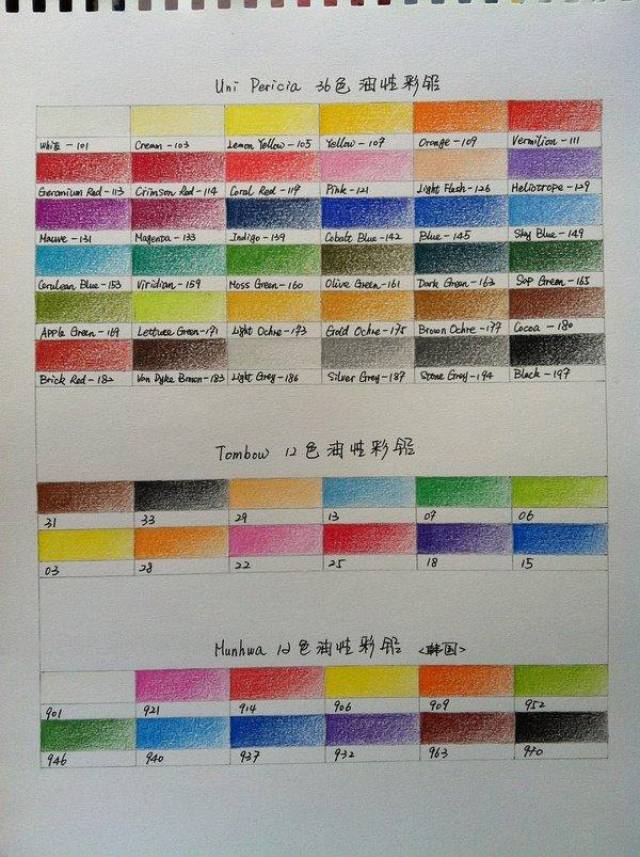 Uni Pericia 36色油性彩铅
White-101 Cream-103 Lemon Yellow-105 Yellow-107 Orange-109 Vermilion-111
Geramium Red-113 Crimson Red-114 Coral Red-119 Pink-121 Light Flesh-126 Heliotrope-129
Mauve-131 Magenta-133 Indigo-139 Cobalt Blue-142 Blue-145 Sky Blue-149
Cerulean Blue-153 Viridian-159 Moss Green-160 Olive Green-161 Dark Green-163 Sap Green-165
Apple Green-169 Lettuce Green-171 Light Ochre-173 Gold Ochre-175 Brown Ochre-177 Cocoa-180
Brick Red-182 Van Dyke Brown-183 Light Grey-186 Silver Grey-187 Stone Grey-194 Black-197
Tombow 12色油性彩铅
31 33 29 13 07 06
03 28 22 25 18 15
Munhwa 12色油性彩铅 <韩国>
901 921 914 906 909 952
946 940 937 932 963 970